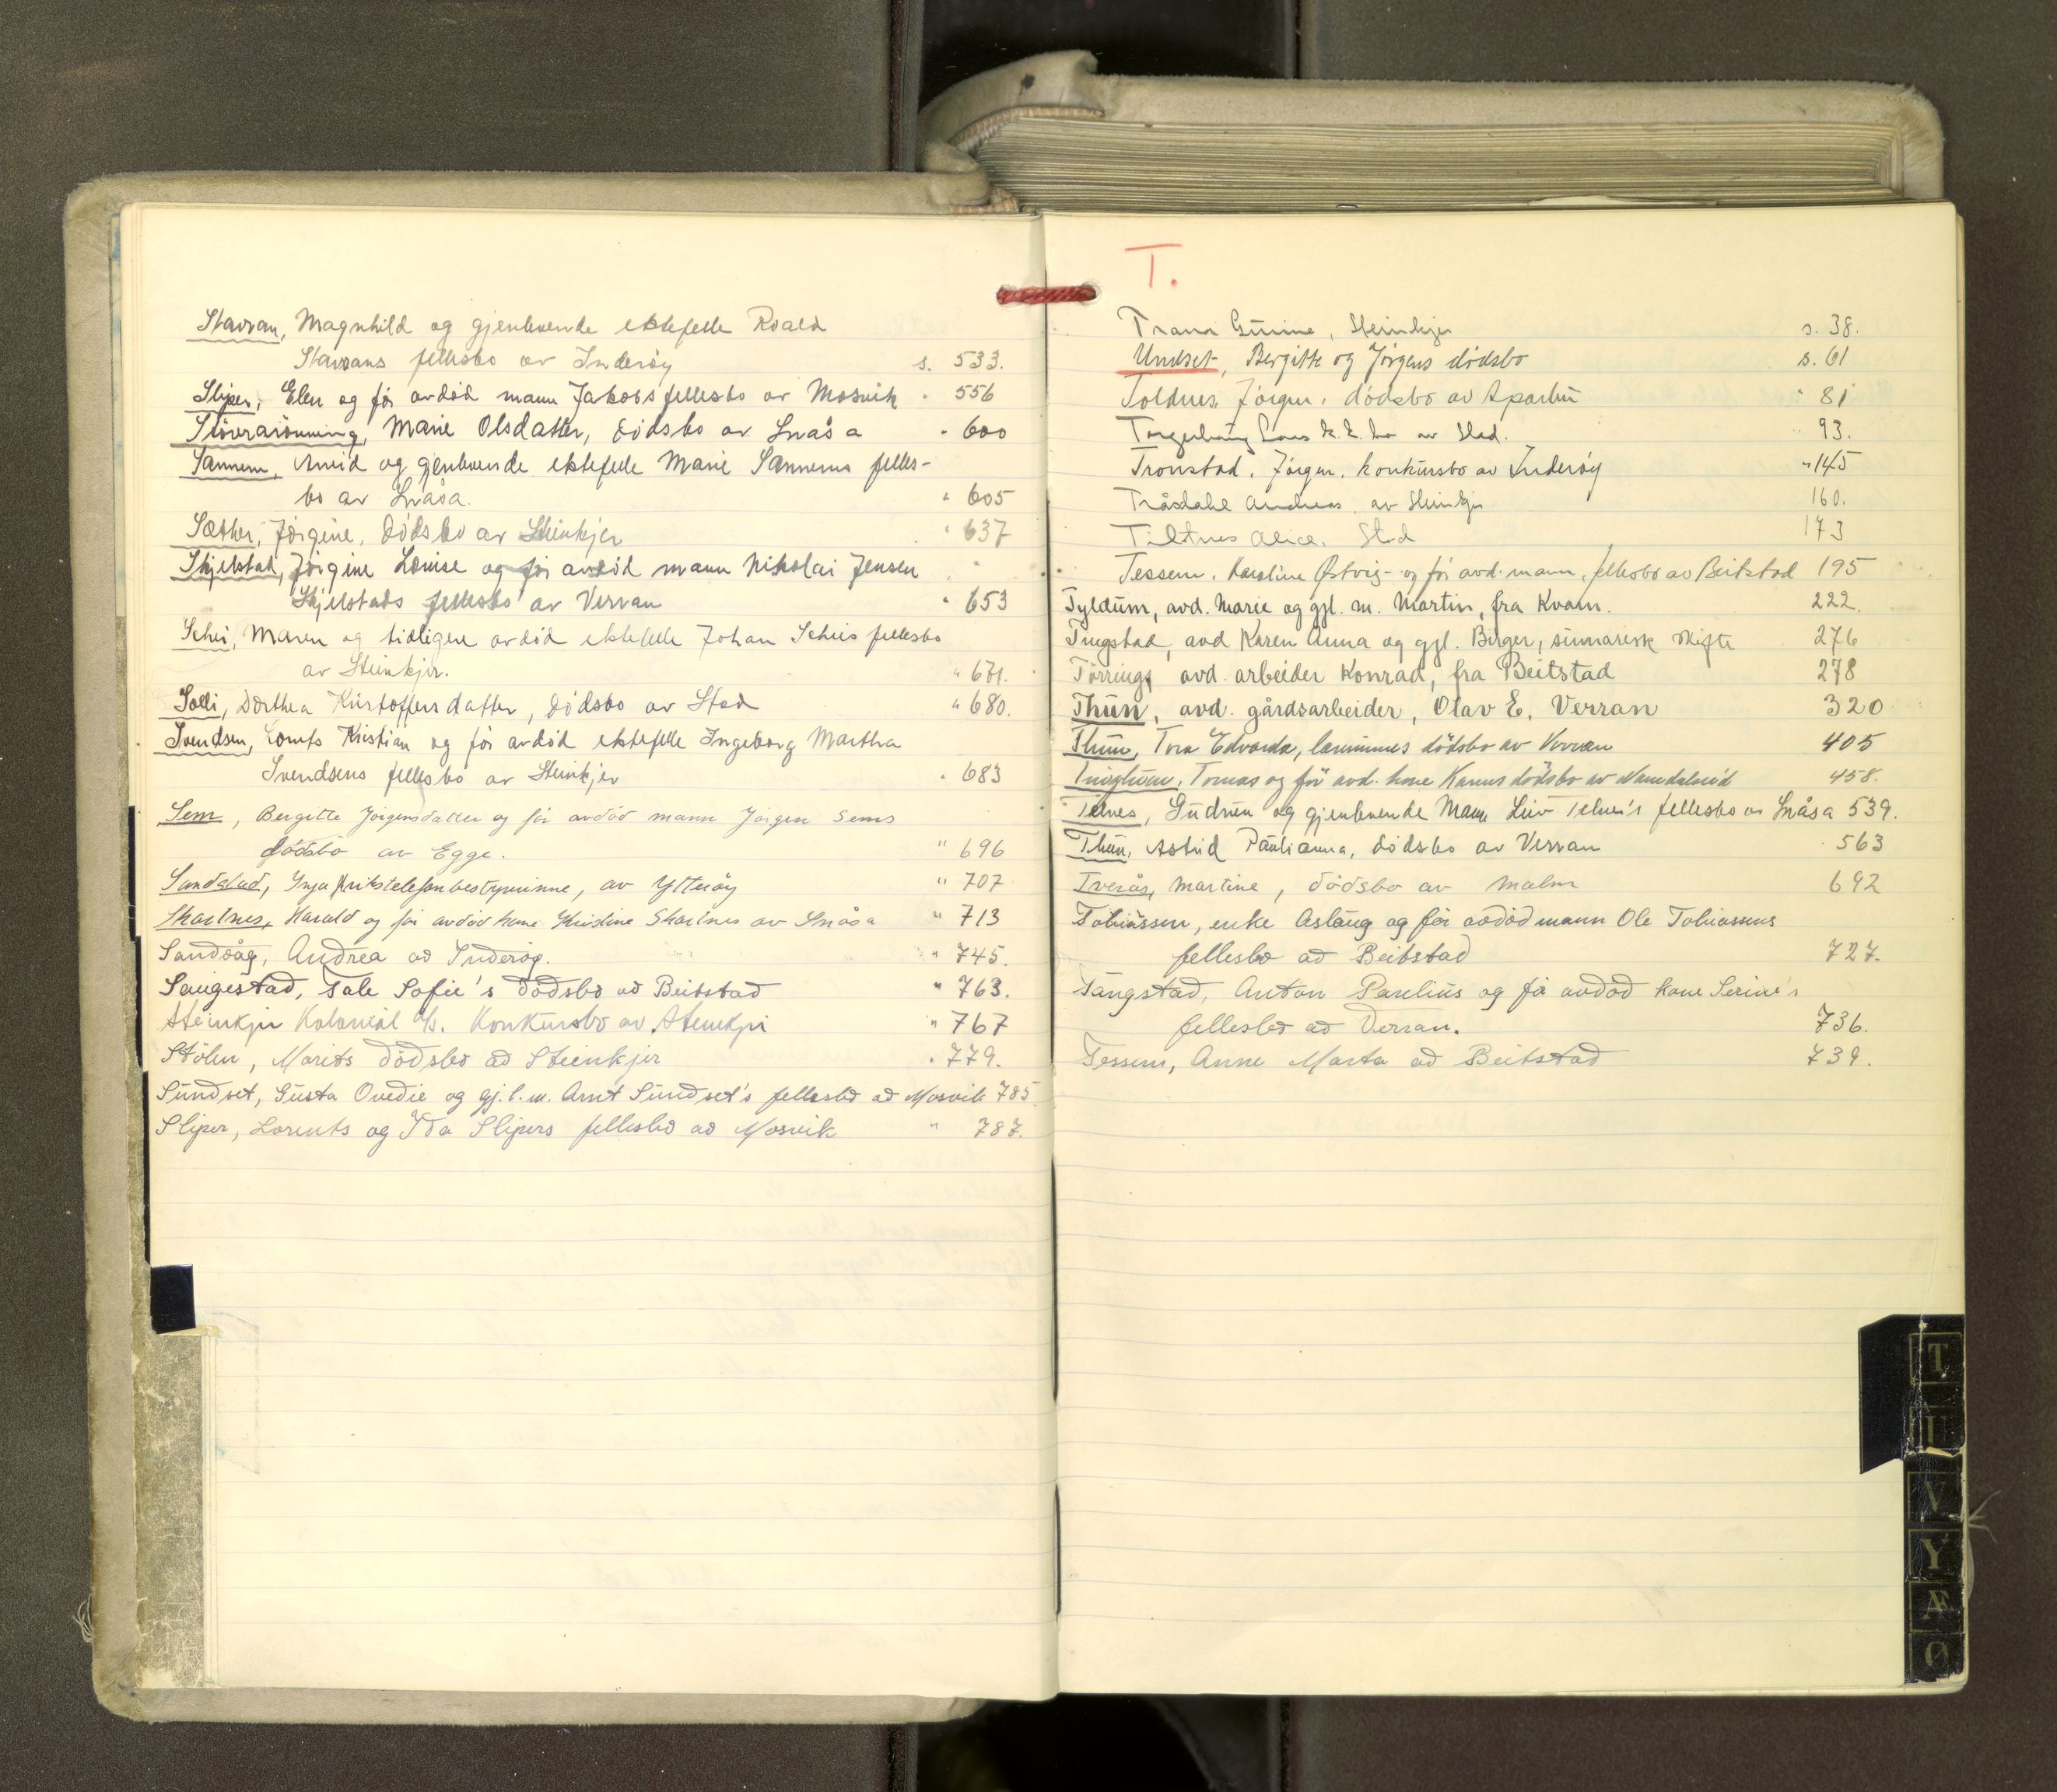 Stavran, Magnhild og gjenlevende ektefelle Roald
Stavrans fellesbo av Inderöy s. 533.
Sliper, Elen og för avdöd mann Jakobs fellesbo av Mosvik " 556
Marie Olsdatter, dödsbo av Snåsa " 600
Sannem, og gjenlevende ektefelle Marie Sannems felles-
bo av Snåsa. " 605
Sæther, Jörgine, dödsbo av Steinkjer " 637
Skjelstad, Jörgine Louise og for avdöd mann Nikolai Jensen
Skjelstads fellesbo av Verran " 653
Schei, Maren og tidligere avdöd ektefelle Johan Scheis fellesbo
av Steinkjer. " 671.
Solli, Dorthea Kristoffersdatter, dödsbo av Stod " 680.
Svendsen, Kristian og för avdöd ektefelle Ingeborg Martha
Svendsens fellesbo av Steinkjer " 683
Sem, Bergitte Jörgensdatter og för avdöd mann Jörgen Sems
dödsbo av Egge. " 696
Sandstad, Inga Rikstelefonbestyrerinne, av Ytteröy " 707
Skartnes, Harald og för avdöd kone Kristine Skartnes av Snåsa " 713
Sandvåg, Andrea av Inderöy. " 745.
Saugestad, Tale Sofie's dödsbo av Beitstad " 763.
Steinkjer Kolonial A/s. Konkursbo av Steinkjer " 767
Stölen, Marits dödsbo av Steinkjer " 779.
Sundset, Gusta Ovedie og gj.l.m. Arnt Sundset's fellesbo av Mosvik 785
Sliper, Lorents og Ida Slipers fellesbo av Mosvik " 787.
T.
Trana Gurine, Steinkjer s. 38.
Undset, Bergitte og Jörgens dödsbo s. 61
Toldnes, Jörgen. dödsbo av Sparbu " 81
Lars av Stod. " 93.
Tronstad. Jörgen. konkursbo av Inderöy " 145
Tråsdahl Andreas, av Steinkjer 160.
Tiltnes Alice. Stod 173
Tessem. Karoline Østvig- og för avd. mann, fellesbo av Beitstad 195
Tyldum, avd. Marie og gjl. m. Martin, fra Kvam. 222.
Tingstad, avd Karen Anna og gjl. Birger, summarisk skifte 276
Törring, avd. arbeider Konrad, fra Beitstad 278
Thun, avd. gårdsarbeider, Olav E. Verran 320
Thun, Tora Edvarda, lærerinnes dödsbo av Verran 405
Tomas og för avd. kone Karens dödsbo av Namdalseid 458.
Telnes, Gudrun og gjenlevende Mann Leiv Telnes's fellesbo av Snåsa 539.
Thun, Astrid Paulianna, dödsbo av Verran 563
Tverås, Martine, dödsbo av Malm 692
Tobiassen, enke Aslaug og för avdöd mann Ole Tobiassens
fellesbo av Beitstad 727.
Tangstad, Anton Paulius og for avdöd kone Serine's
fellesbo av Verran. 736.
Tessem, Anne Marta av Beitstad 739.
T
U
V
Y
Æ
Ø